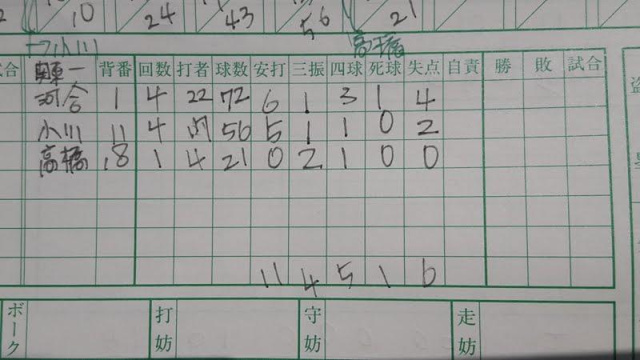 10 24 43 56 21
→小川 高橋
合 背番 回数 打者 球数 安打 三振 四球 死球 失点 自責 勝 敗 試合
河合 1 4 22 72 6 1 3 1 4
小川 11 4 56 5 1 1 0 2
高橋 18 1 4 21 0 2 1 0 0
11 4 5 1 6
ボーク 打妨 守妨 走妨